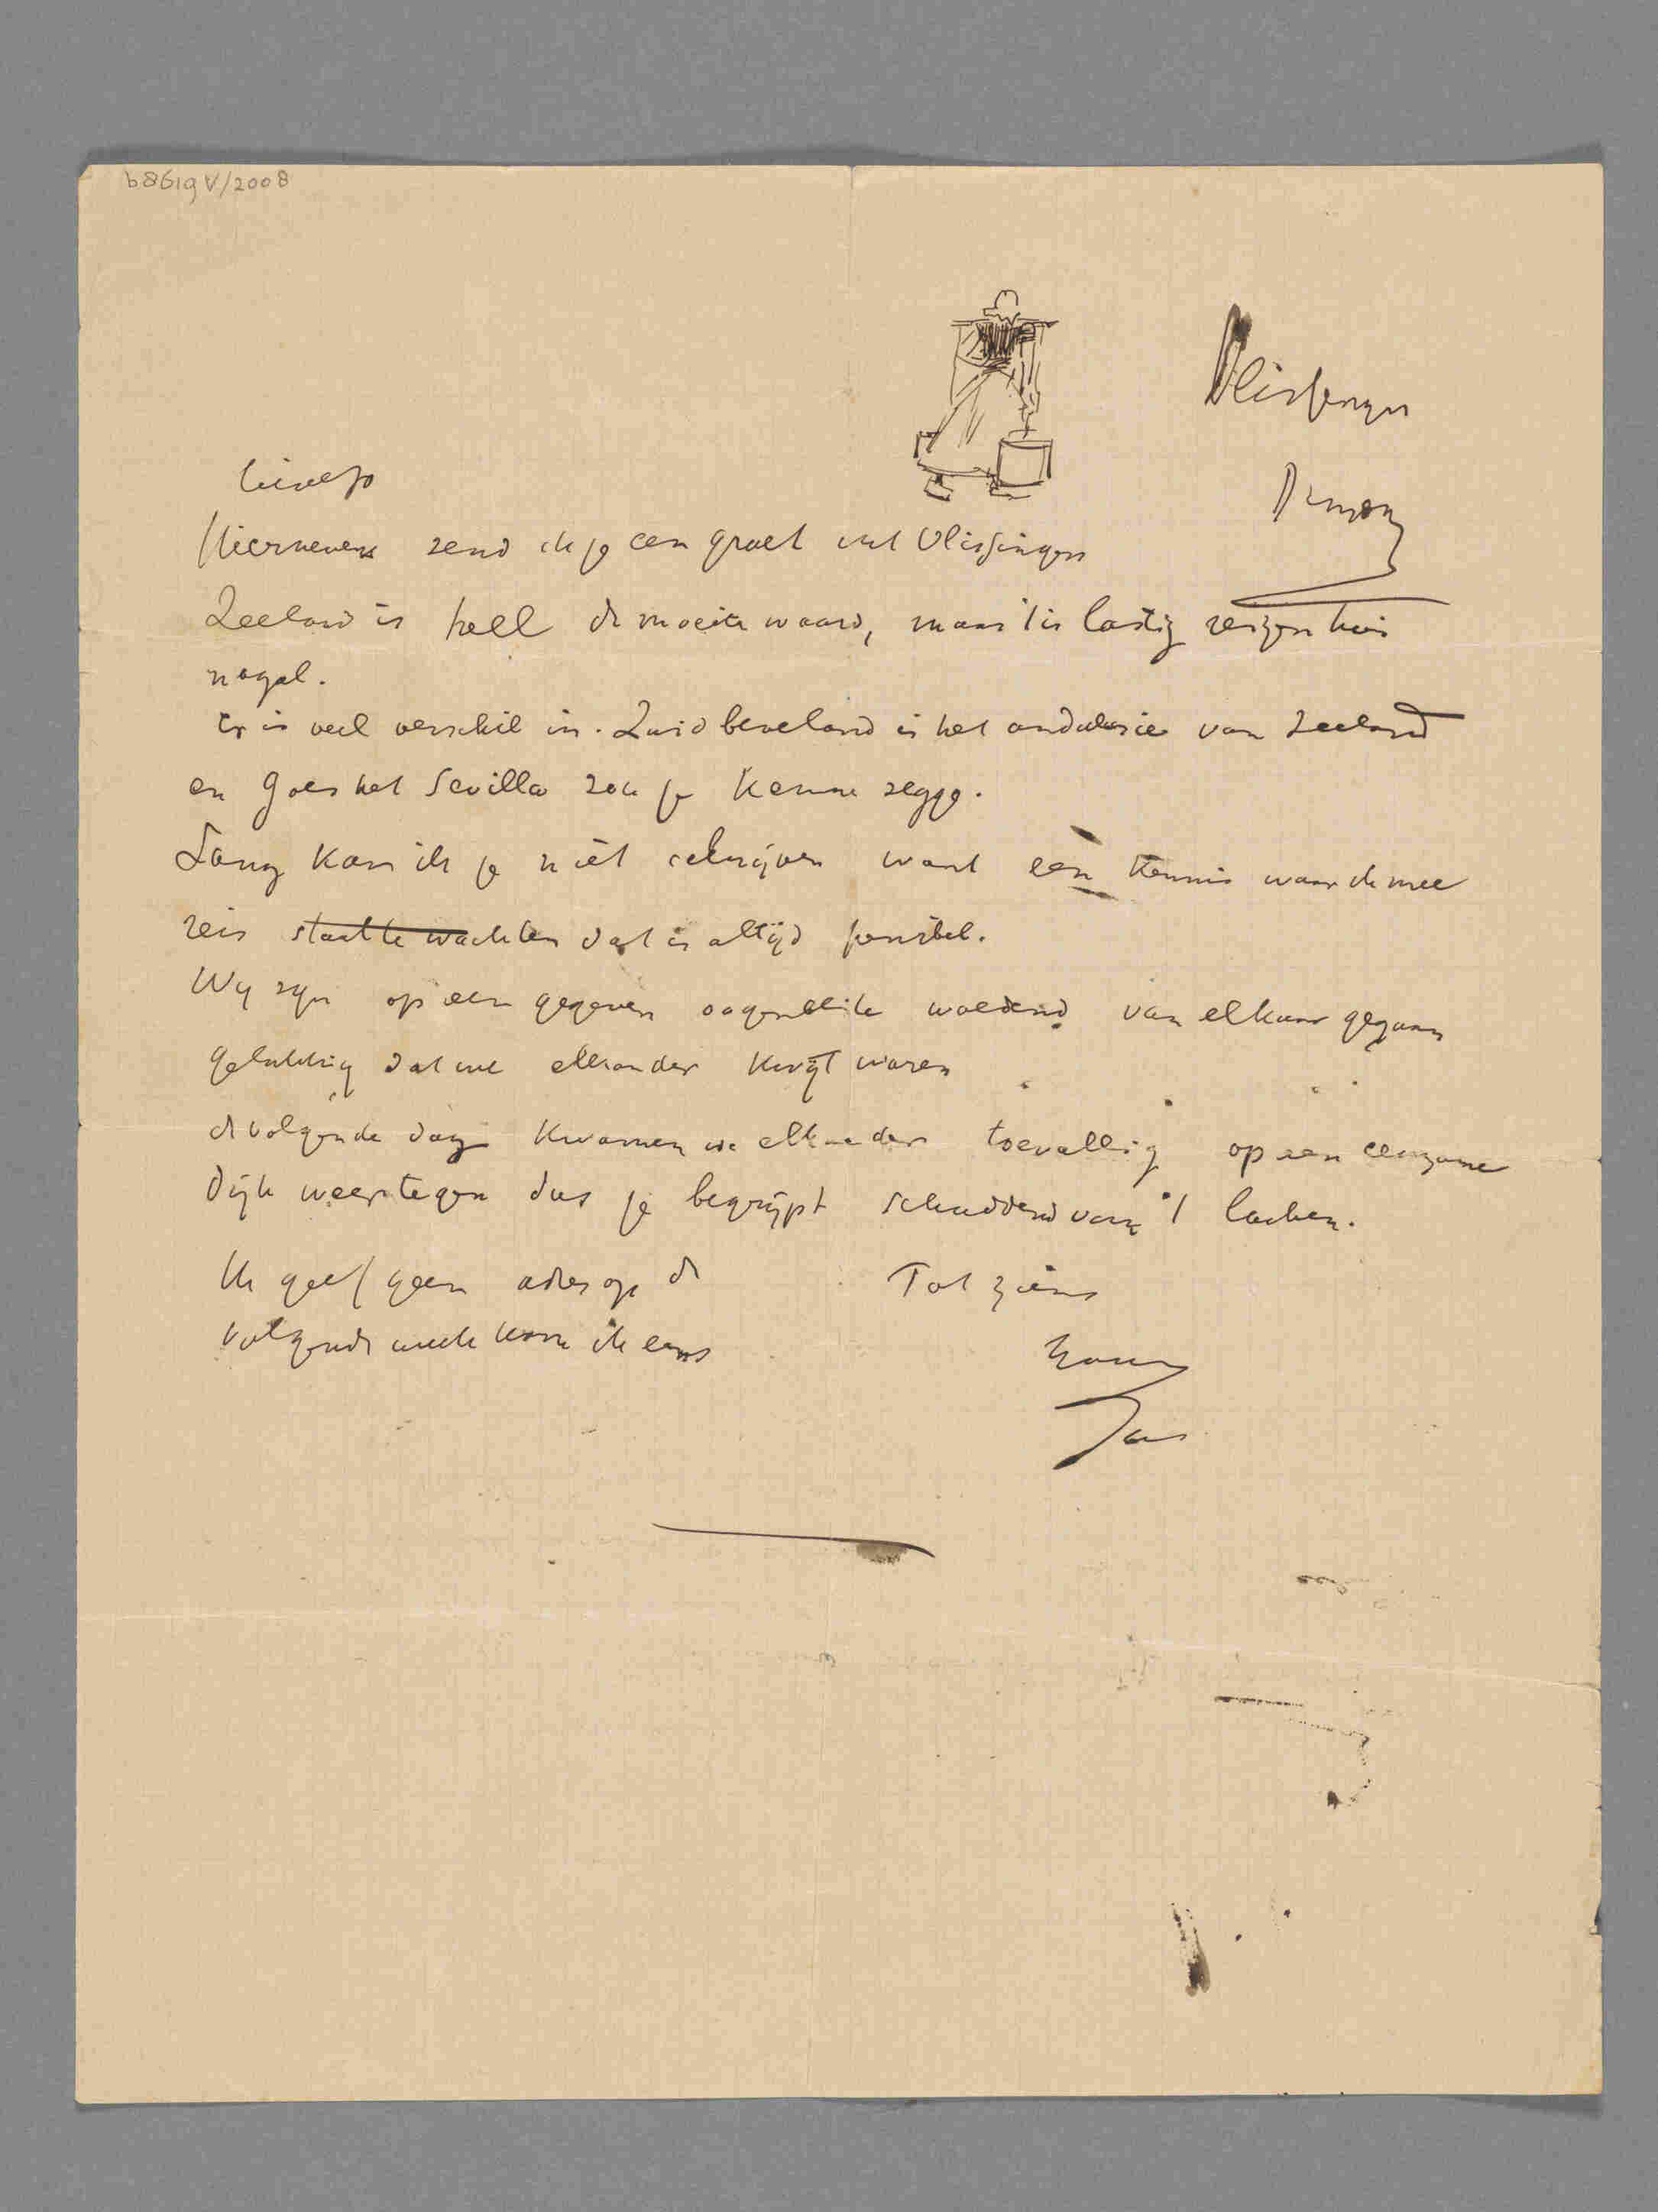 b8619 V/2008
Vlissingen
Lieve Jo
Hiernevens zend ik je een groet uit Vlissingen
Zeeland is heel de moeite waard, maar 't is lastig reizen hier
nogal.
Er is veel verschil in. Zuid beveland is het andalusie van Zeeland
en Goes het Sevilla zou je kenne zegge.
Lang kan ik je niet schrijven want een kennis waar ik mee
reis staat te wachten dat is altijd
Wij zyn op een gegeven oogenblik woedend van elkaar gegaan
gelukkig dat we elkander kwijt waren
de volgende dag kwamen we elkander toevallig op een eenzame
dijk weer tegen dus je begrijpt schuddend van 't lachen.
Ik geef geen adres op de
volgende week kom ik eens
Tot ziens
Jan